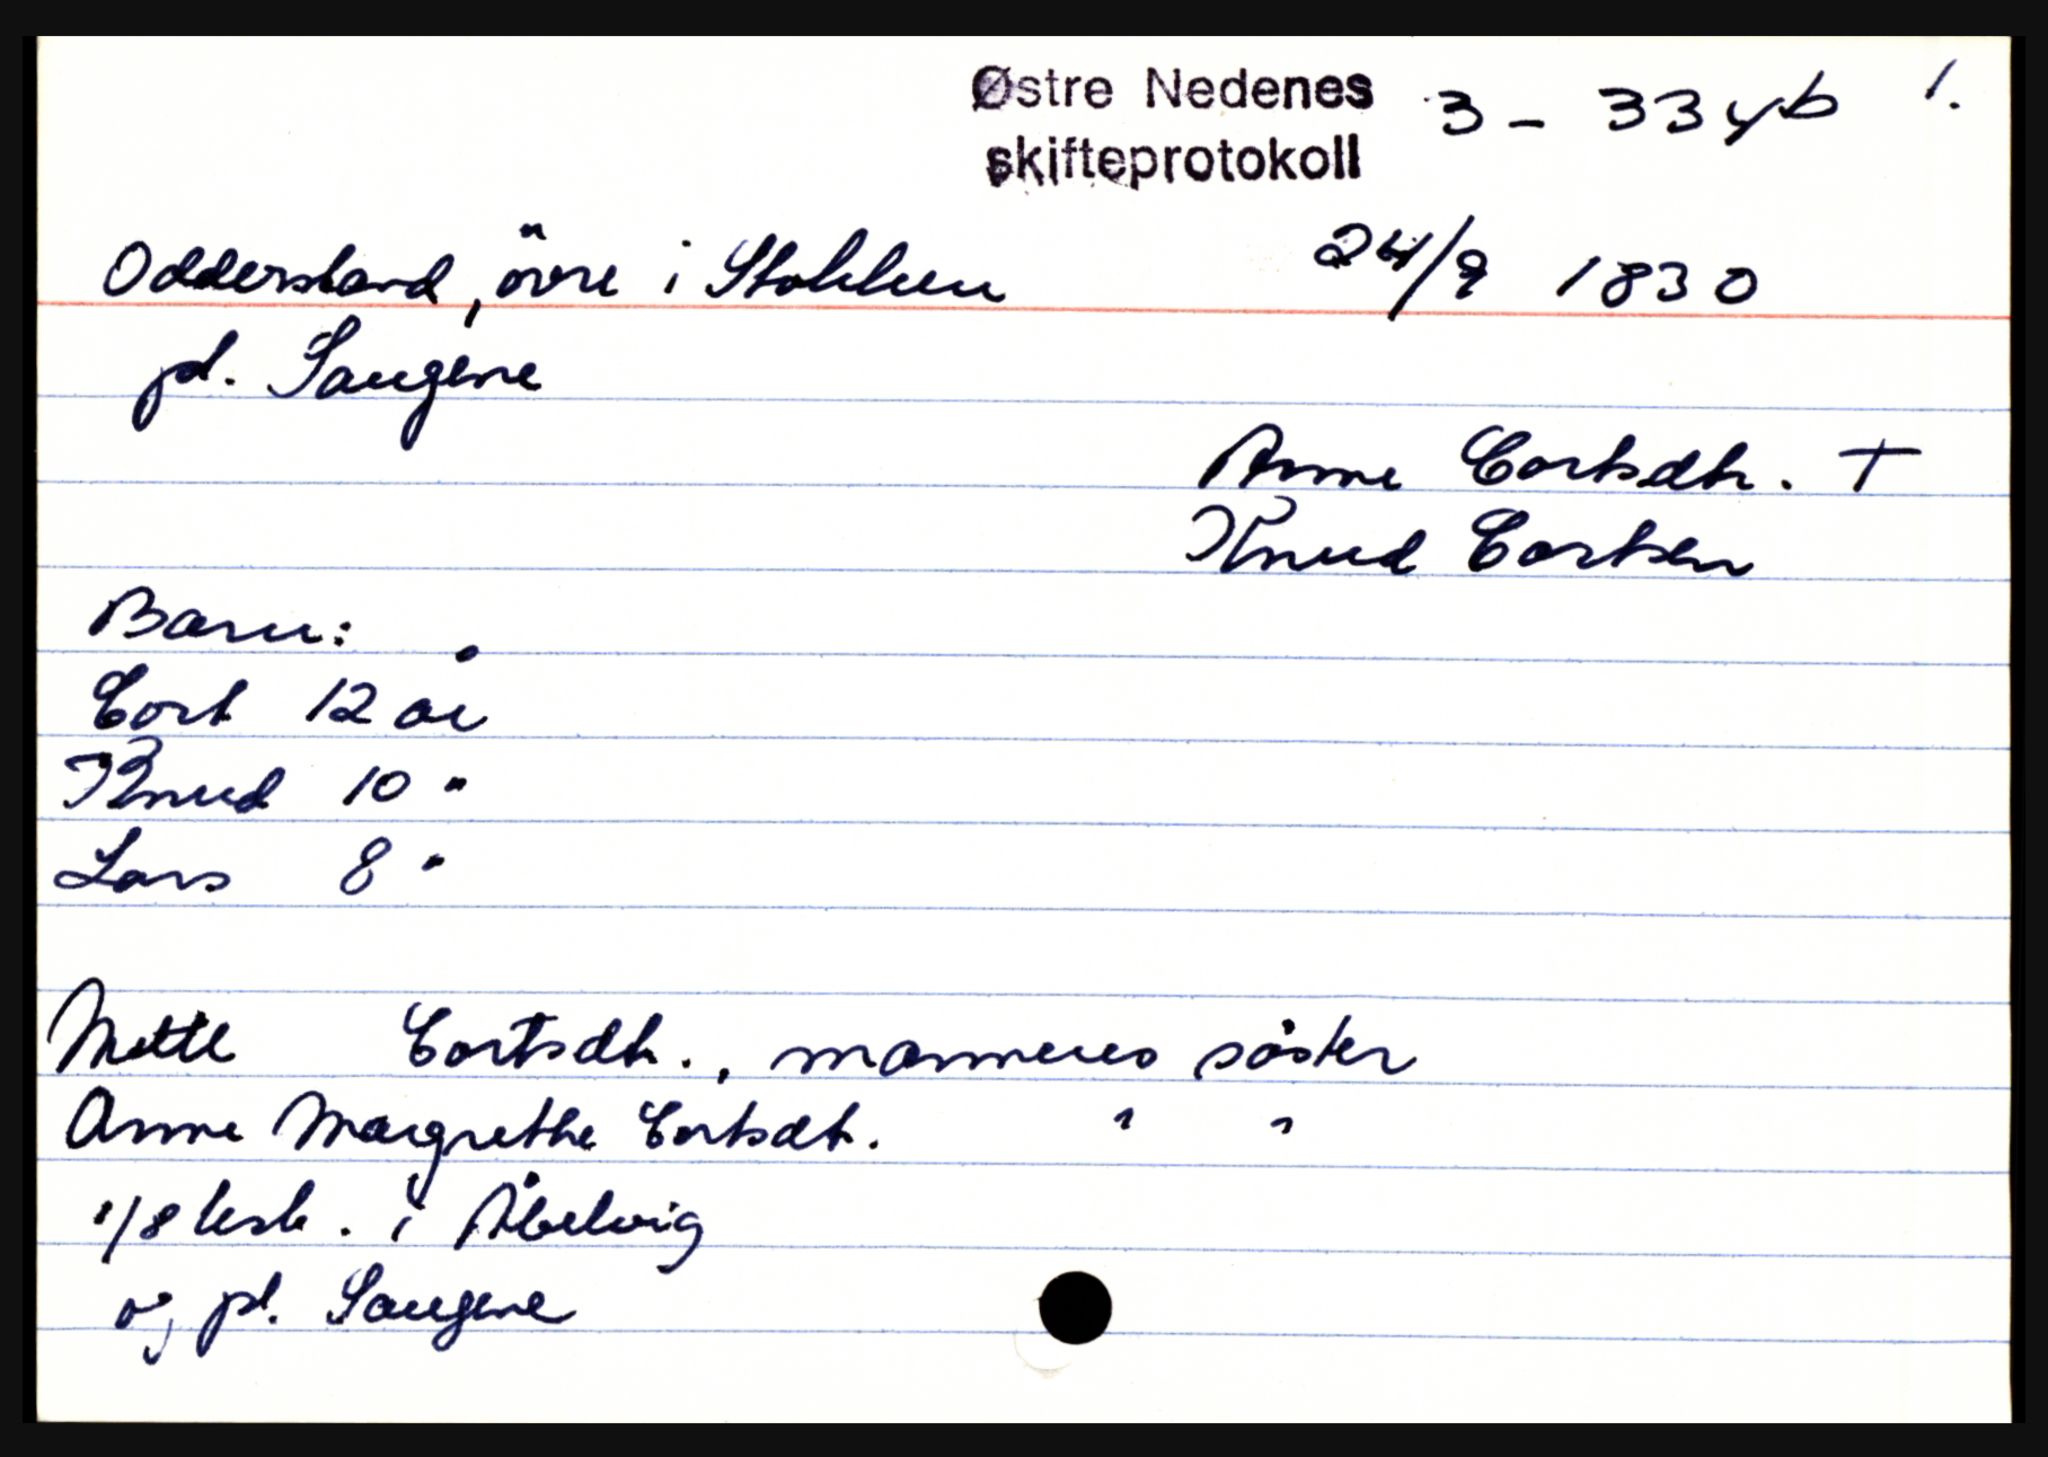 Østre Nedenes 3 - 334b 1.
skifteprotokoll
Odderstand, övre i Stokken 24/9 1830
pl. Saugene
Anne Cortsdtr. +
Knud Cortsen
Barn:
Cort 12 år
Knud 10 "
Lars 8 "
Mette Cortsdtr., mannens söster
Anne Margrethe Cortsdtr. " "
1/8 i Åbelvig
og pl. Saugene